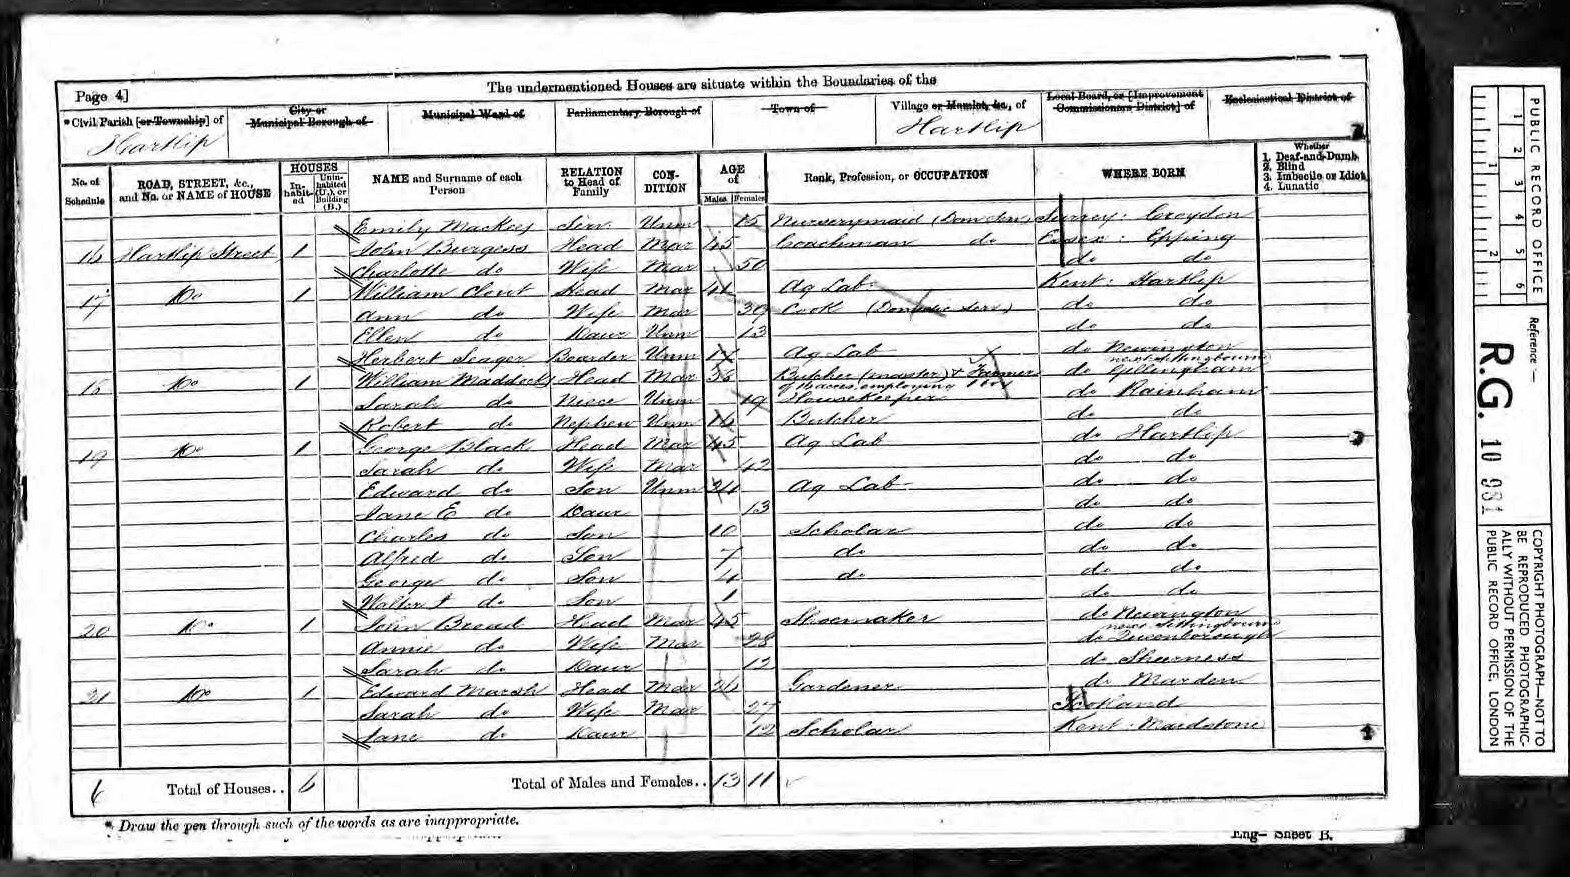 The undermentioned Houses are situate within the Boundaries of the
Page 4]
*Civil Parish [or Township] of
Hartlip
City or
Municipal Borough of
Municipal Ward of
Parliamentary Borough of
Town of
Village or Hamlet, &c., of
Hartlip
Local Board, or [Improvement
Commissioners District] of
Ecclesiastical District of
No. of
Schedule
ROAD, STREET, &c.,
and No. or NAME of HOUSE
HOUSES
In-
habit-
ed
Unin-
habited
(U.), or
Building
(B.)
NAME and Surname of each
Person
RELATION
to Head of
Family
CON-
DITION
AGE
of
Males Females
Rank, Profession, or OCCUPATION
WHERE BORN
Whether
1. Deaf-and-Dumb
2. Blind
3. Imbecile or Idiot
4. Lunatic
Emily Serv Unm 15 Nurserymaid (Dom Serv) Surrey: Croydon
16 Hartlip Street 1 John Burgess Head Mar 45 Coachman do Essex: Epping
Charlotte do Wife Mar 50 do do
17 Do 1 William Clout Head Mar 41 Ag Lab Kent: Hartlip
Ann do Wife Mar 39 Cook (Domestic Serv) do do
Ellen do Daur Unm 13 do do
Herbert Seager Boarder Unm Ag Lab do Newington
next Sittingbourne
18 Do 1 William Maddocks Head Mar 36 Butcher (master) & Farmer do Gillingham
acres employing 1 boy
Sarah do Niece Unm 19 Housekeeper do Rainham
Robert do Nephew Unm 16 Butcher do do
19 Do 1 George Black Head Mar 45 Ag Lab do Hartlip
Sarah do Wife Mar 42 do do
Edward do Son Unm Ag Lab do do
Jane E do Daur 13 do do
Charles do Son 10 Scholar do do
Alfred do Son 7 do do do
George do Son 4 do do do
Walter J do Son 1 do do
20 Do 1 John Bread Head Mar 45 Shoemaker do Newington
next Sittingbourne
Annie do Wife Mar 38 do Queenborough
Sarah do Daur 12 do Sheerness
21 Do 1 Edward Marsh Head Mar 26 Gardener do Marden
Sarah do Wife Mar 27 Scotland
Jane do Daur 12 Scholar Kent: Maidstone
6 Total of Houses.. 6 Total of Males and Females.. 13 11
* Draw the pen through such of the words as are inappropriate.
Eng- Sheet B.
PUBLIC RECORD OFFICE
1 2 3 4 5 6
1 2
Reference :-
R.G. 10 981
COPYRIGHT PHOTOGRAPH-NOT TO
BE REPRODUCED PHOTOGRAPHIC-
ALLY WITHOUT PERMISSION OF THE
PUBLIC RECORD OFFICE, LONDON